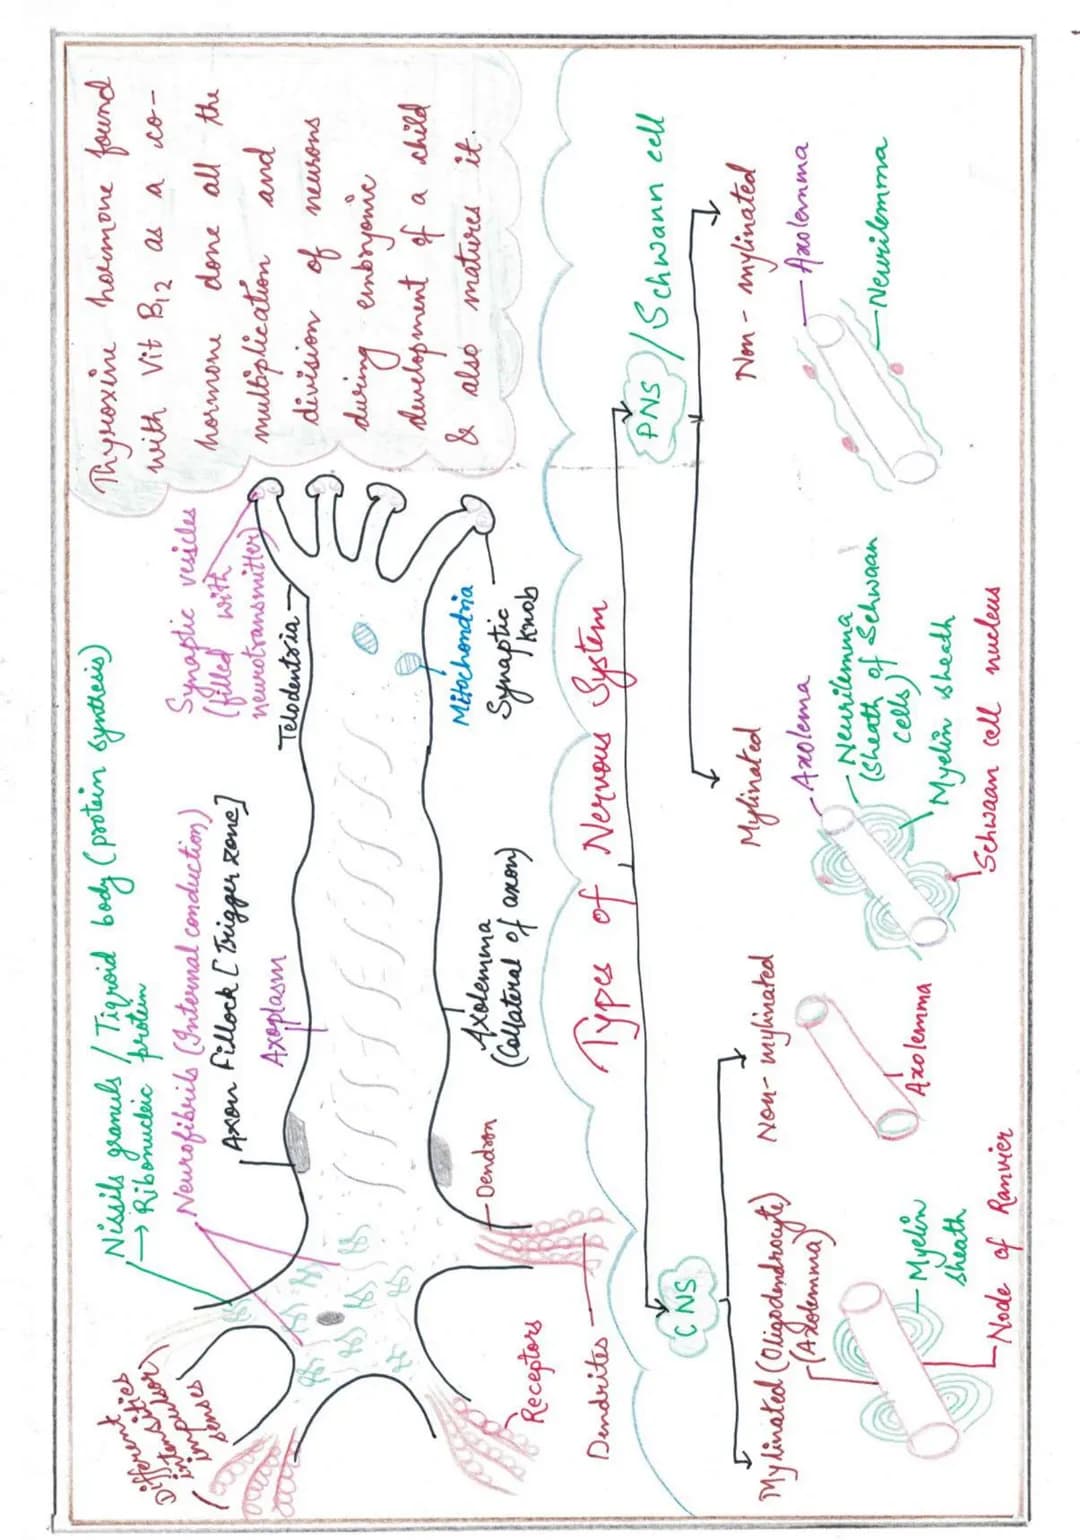 Nissils granuls / Tigroid body (protein synthesis)
→ Ribonucleic protein
Neurofibrils (Internal conduction)
Axon fillock [Trigger zone]
Axoplasm
Synaptic vesicles
(filled with
neurotransmitter)
Telodentria
Thyroxine hormone found
with Vit B12 as a co-
hormone done all the
multiplication and
division of neurons
during embryonic
development of a child
& also matures it.
Different
intensities
impulsor
senses
Receptors
Dendrites
Dendron
Axolemma
(Collateral of axon)
Mitochondria
Synaptic
knob
Types of Nervous System
CNS
PNS / Schwann cell
Mylinated (Oligodendrocyte)
(Axolemma)
Myelin
sheath
Node of Ranvier
Non-mylinated
Axolemma
Mylinated
Axolema
Neurilemma
(sheath of Schwaan
cells)
Myelin sheath
Schwaan cell nucleus
Non-mylinated
Axolemma
Neurilemma